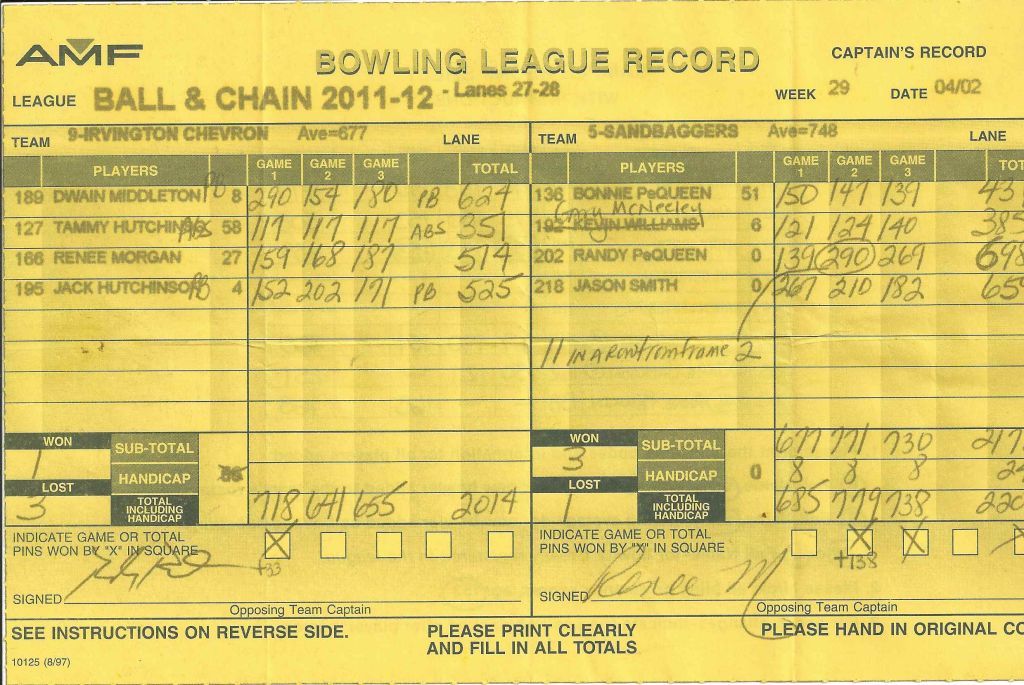 AMF
BOWLING LEAGUE RECORD
CAPTAIN'S RECORD
LEAGUE BALL & CHAIN 2011-12 - Lanes 27-28 WEEK 29 DATE 04/02
TEAM 9-IRVINGTON CHEVRON Ave=677 LANE
PLAYERS GAME 1 GAME 2 GAME 3 TOTAL
189 DWAIN MIDDLETON PB 8 290 154 180 PB 624
127 TAMMY HUTCHINS ABS 58 117 117 117 ABS 351
166 RENEE MORGAN 27 159 168 187 514
195 JACK HUTCHINSON PB 4 152 202 171 PB 525
WON 1 SUB-TOTAL
LOST 3 HANDICAP
TOTAL INCLUDING HANDICAP 718 641 655 2014
INDICATE GAME OR TOTAL
PINS WON BY "X" IN SQUARE X
+33
SIGNED
Opposing Team Captain
TEAM 5-SANDBAGGERS Ave=748 LANE
PLAYERS GAME 1 GAME 2 GAME 3 TOT
136 BONNIE PeQUEEN 51 150 147 139 43
McNeeley
192 KEVIN WILLIAMS 6 121 124 140 385
202 RANDY PeQUEEN 0 139 290 269 698
218 JASON SMITH 0 267 210 182 65
11 IN A ROW from frame 2
WON 3 SUB-TOTAL 677 771 730 217
LOST 1 HANDICAP 0 8 8 8 2
TOTAL INCLUDING HANDICAP 685 779 738 220
INDICATE GAME OR TOTAL
PINS WON BY "X" IN SQUARE X X X
+138
SIGNED Renee M
Opposing Team Captain
SEE INSTRUCTIONS ON REVERSE SIDE.
PLEASE PRINT CLEARLY
AND FILL IN ALL TOTALS
PLEASE HAND IN ORIGINAL CO
10125 (8/97)